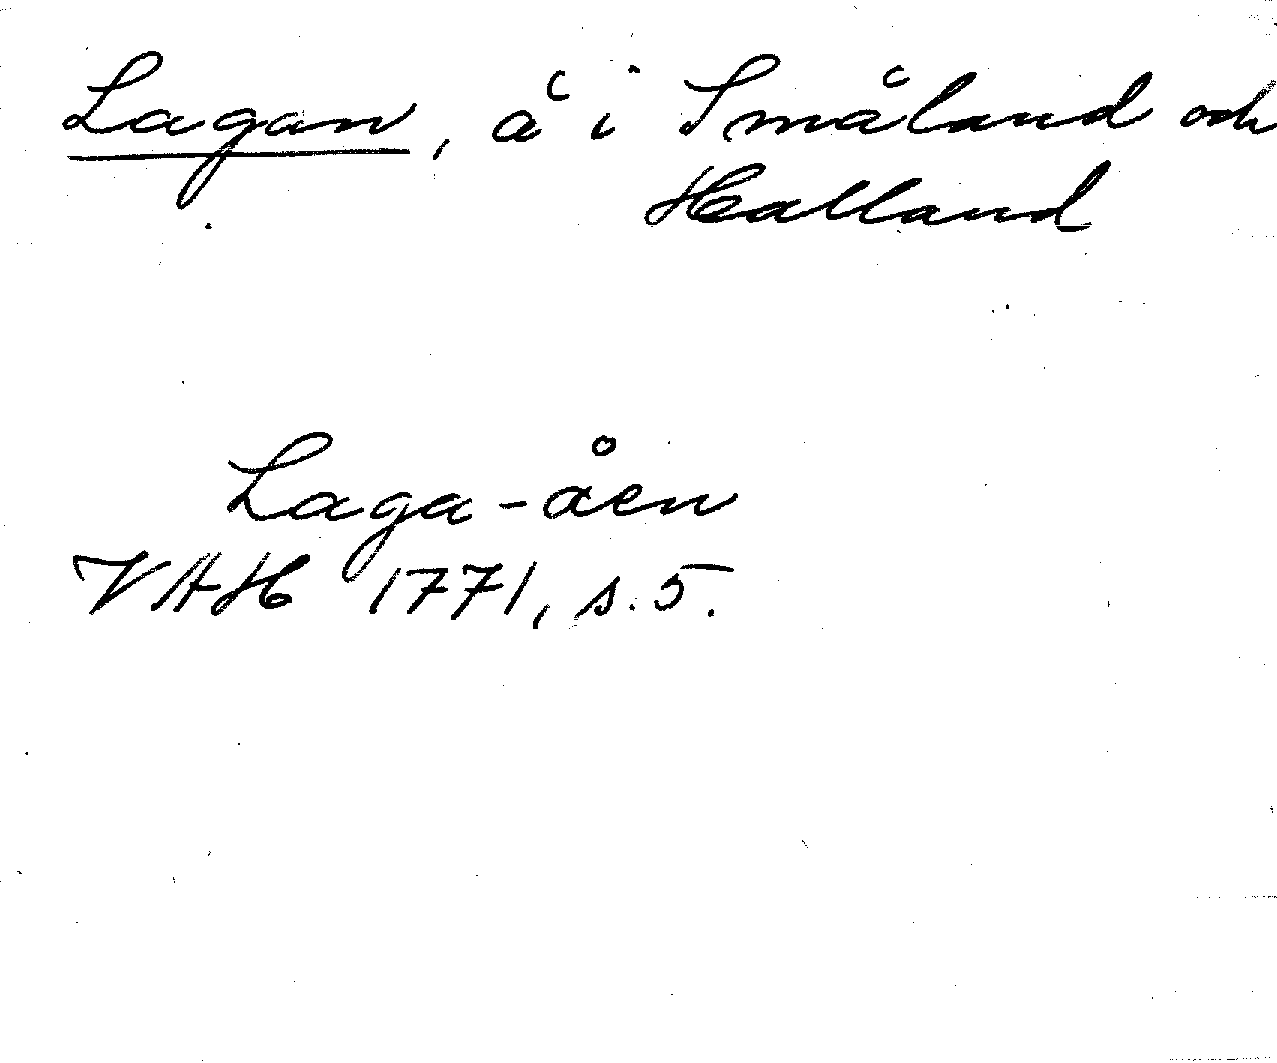 Lagan, å i Småland och
Halland
Laga-åen
VAH 1771, s. 5.